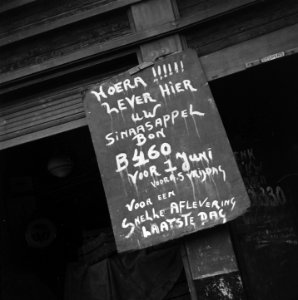 HOERA !!!!!!
LEVER HIER
UW
SINAASAPPEL
BON
B460
VOOR 1 JUNI
VOOR A.S VRIJDAG
VOOR EEN
SNELLE AFLEVERING
LAATSTE DAG